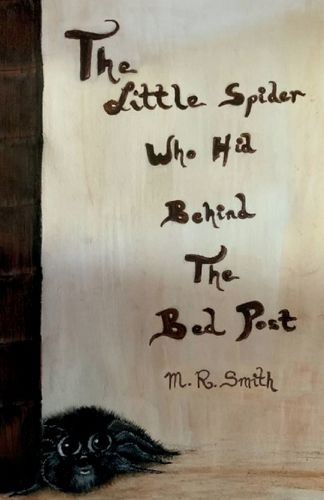 The
Little Spider
Who Hid
Behind
The
Bed Post
M. R. Smith